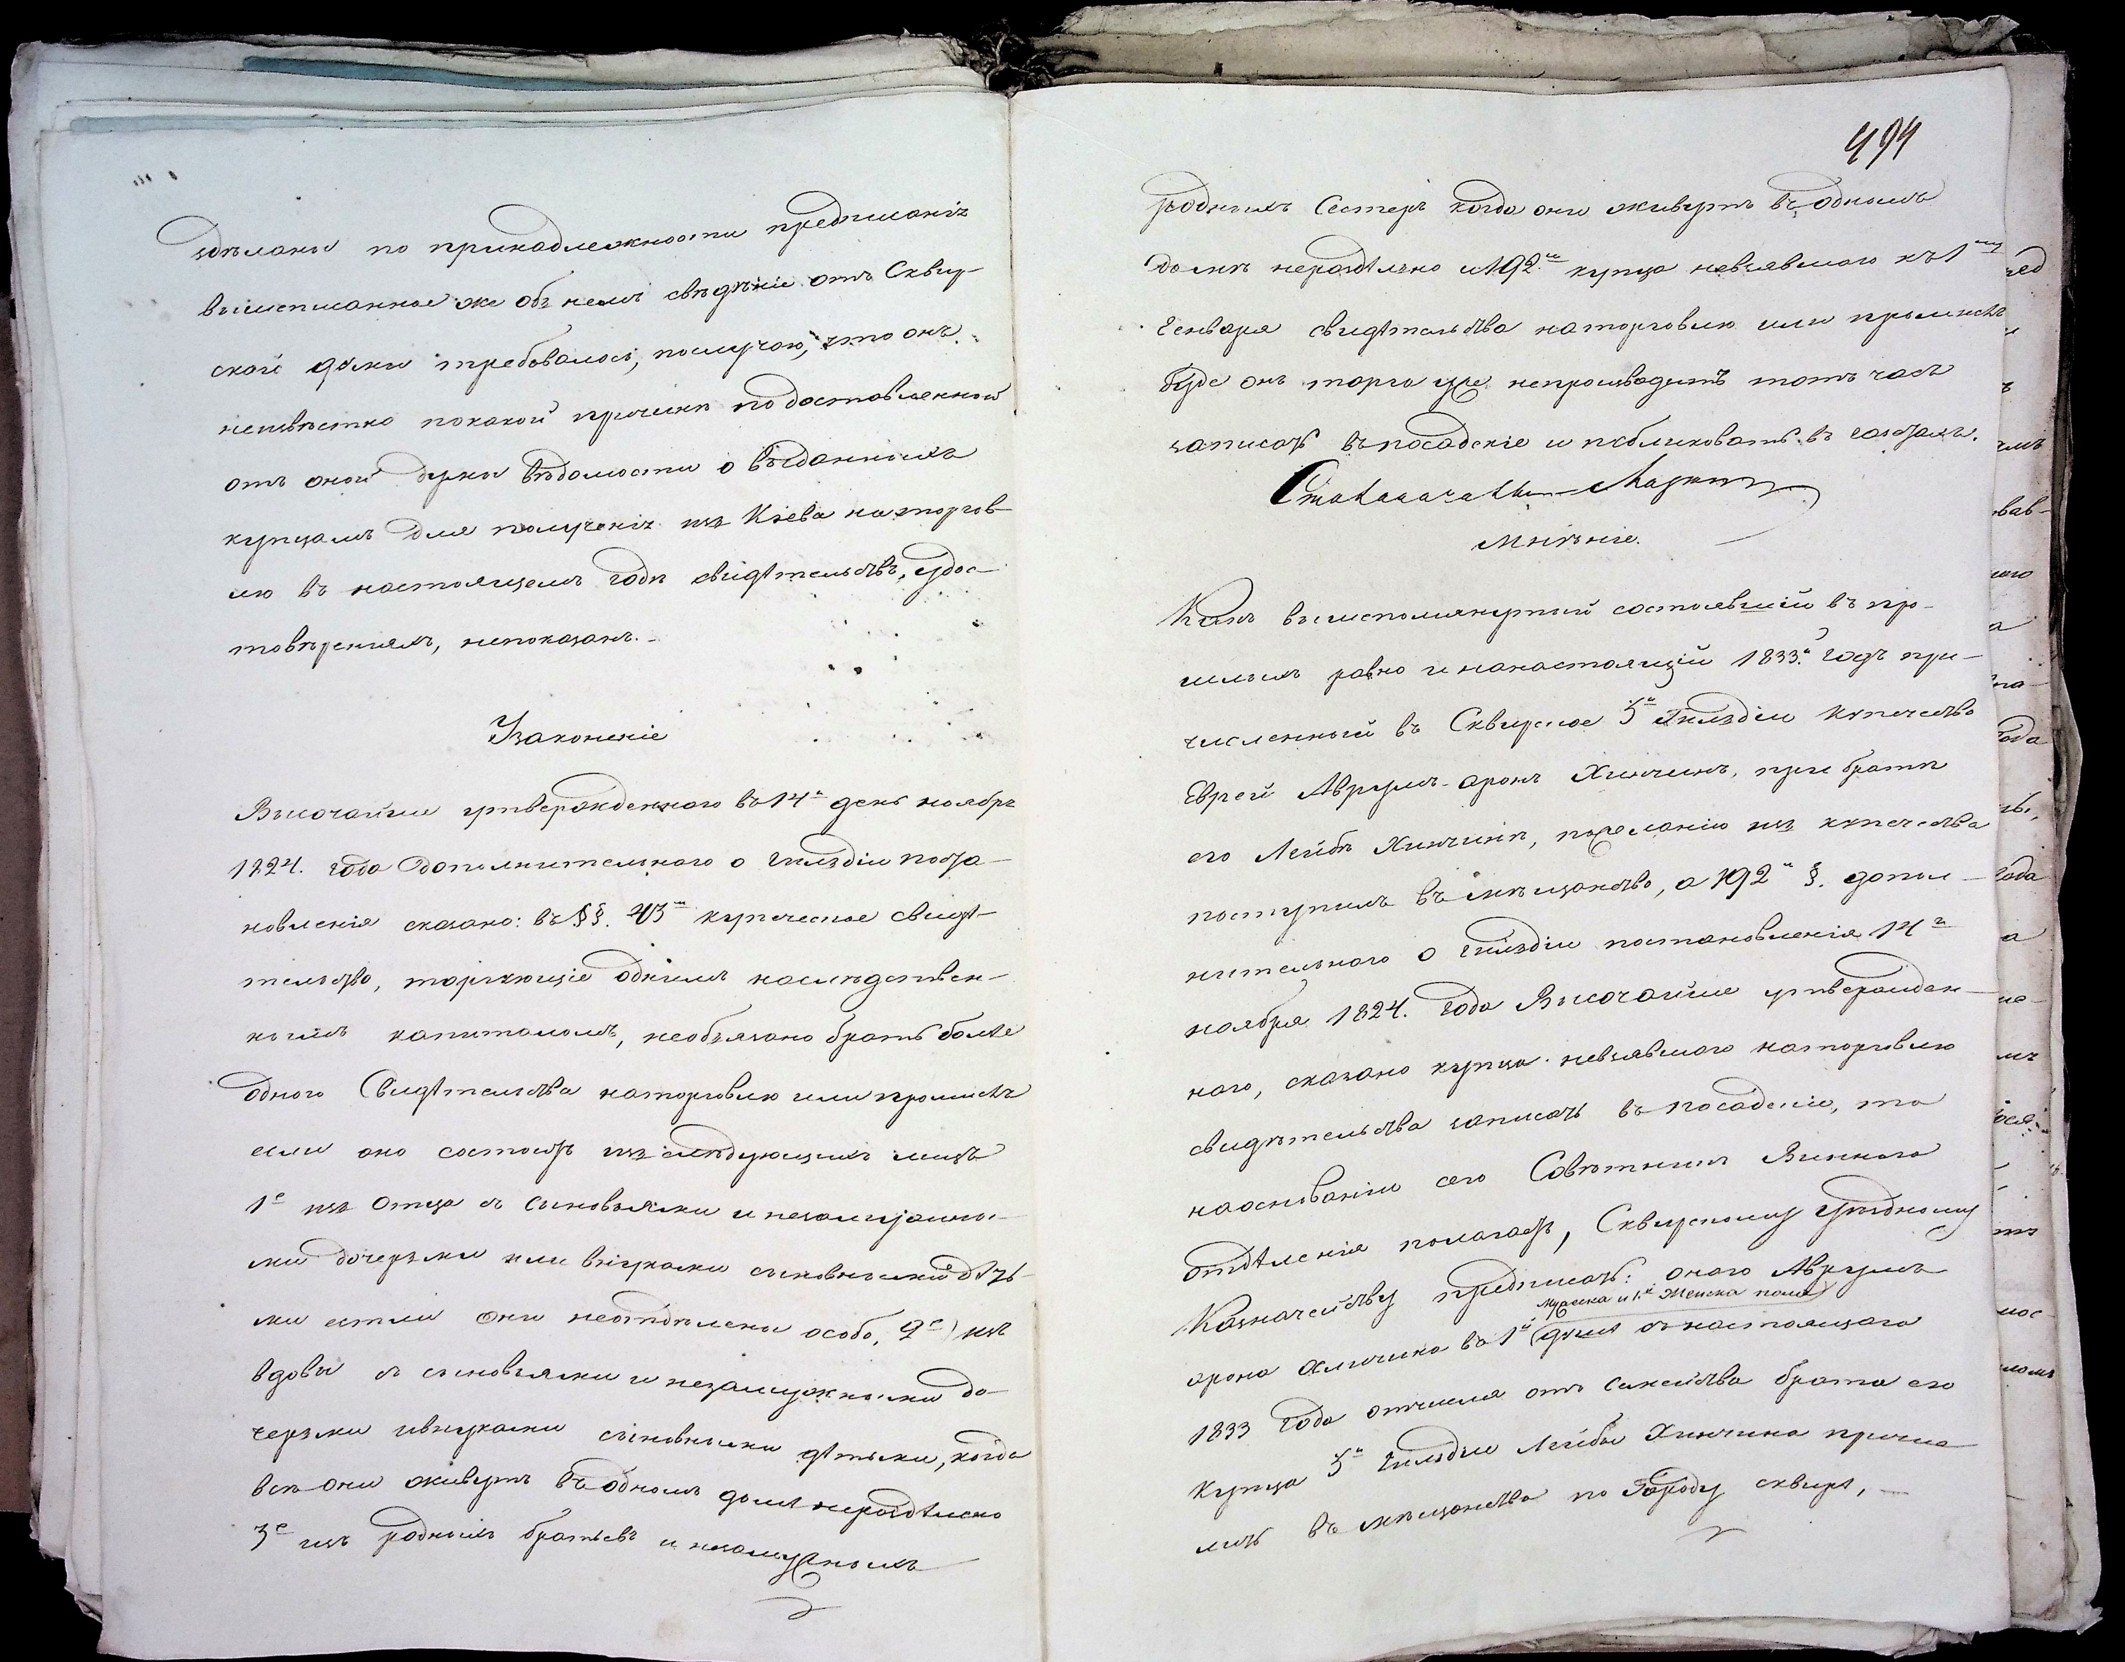 здѣланы по принадлежности предписанія
вышеписанное же объ немъ свѣдѣніе отъ Сквир-
ской думы требовалось, получаю, что онъ
неизвѣстно покакой причинѣ по доставленной
отъ оной думы вѣдомости о выданныхъ
купцамъ для полученія изъ Кіева наторгов-
лю въ настоящемъ годѣ свидѣтельствъ, удос-
товѣреніямъ, непоказанъ.
Узаконеніе
Высочайше утвержденнаго въ 14й день ноября
1824. года дополнительнаго о гильдіи поста-
новленія сказано: въ §§. 43мъ купеческое свидѣ-
тельство, торгующіе однимъ наслѣдствен-
нымъ капиталомъ, необязано брать болѣе
одного Свидѣтельства наторговлю или промыслъ
если оно состоитъ изъ слѣдующихъ лицъ
1е изъ Отца съ сыновьями и незамужны-
ми дочерьми или внуками сыновными дѣть-
ми если они неотдѣлены особо, 2е) изъ
вдовы съ сыновьями и незамужными до-
черьми ивнуками сыновными дѣтьми, когда
всѣ они живутъ въ одномъ домѣ нераздѣльно
3е изъ родныхъ братьевъ и незамужныхъ
494
родныхъ Сестеръ когда они живутъ въ одномъ
домѣ нераздѣльно и 192мъ купца невзявшаго къ 1му
Генваря свидѣтельства наторговлю или промыслъ
буде онъ торга уже непроизводитъ тотъ часъ
записать въ посадскіе и публиковать въ газетахъ.
мнѣніе.
Какъ вышепомянутый состоявшій въ про-
шломъ равно и нанастоящій 1833й годъ при-
численный въ Сквирское 3й Гильдіи купечество
Еврей Аврумъ-аронъ Хинчинъ, при братѣ
его Лейбѣ Хинчинѣ, пожеланію изъ купечества
поступилъ въ мѣщанство, а 192й §. допол-
нительнаго о гильдіи постановленія 14го
ноября 1824. года Высочайше утвержден-
наго, сказано купца невзявшаго наторговлю
свидѣтельства записать въ посадскіе, то
наоснованіи сего Совѣтникъ Виннаго
отдѣленія полагаетъ, Сквирскому уѣздному
Казначейству предписать: онаго Аврумъ
мужеска и 1й Женска пола
арона Хинчина въ 1й души съ настоящаго
1833 года отчисля отъ семейства брата его
купца 3й гильдіи Лейбы Хинчина причис-
лить въ мѣщанство по Городу сквирѣ,